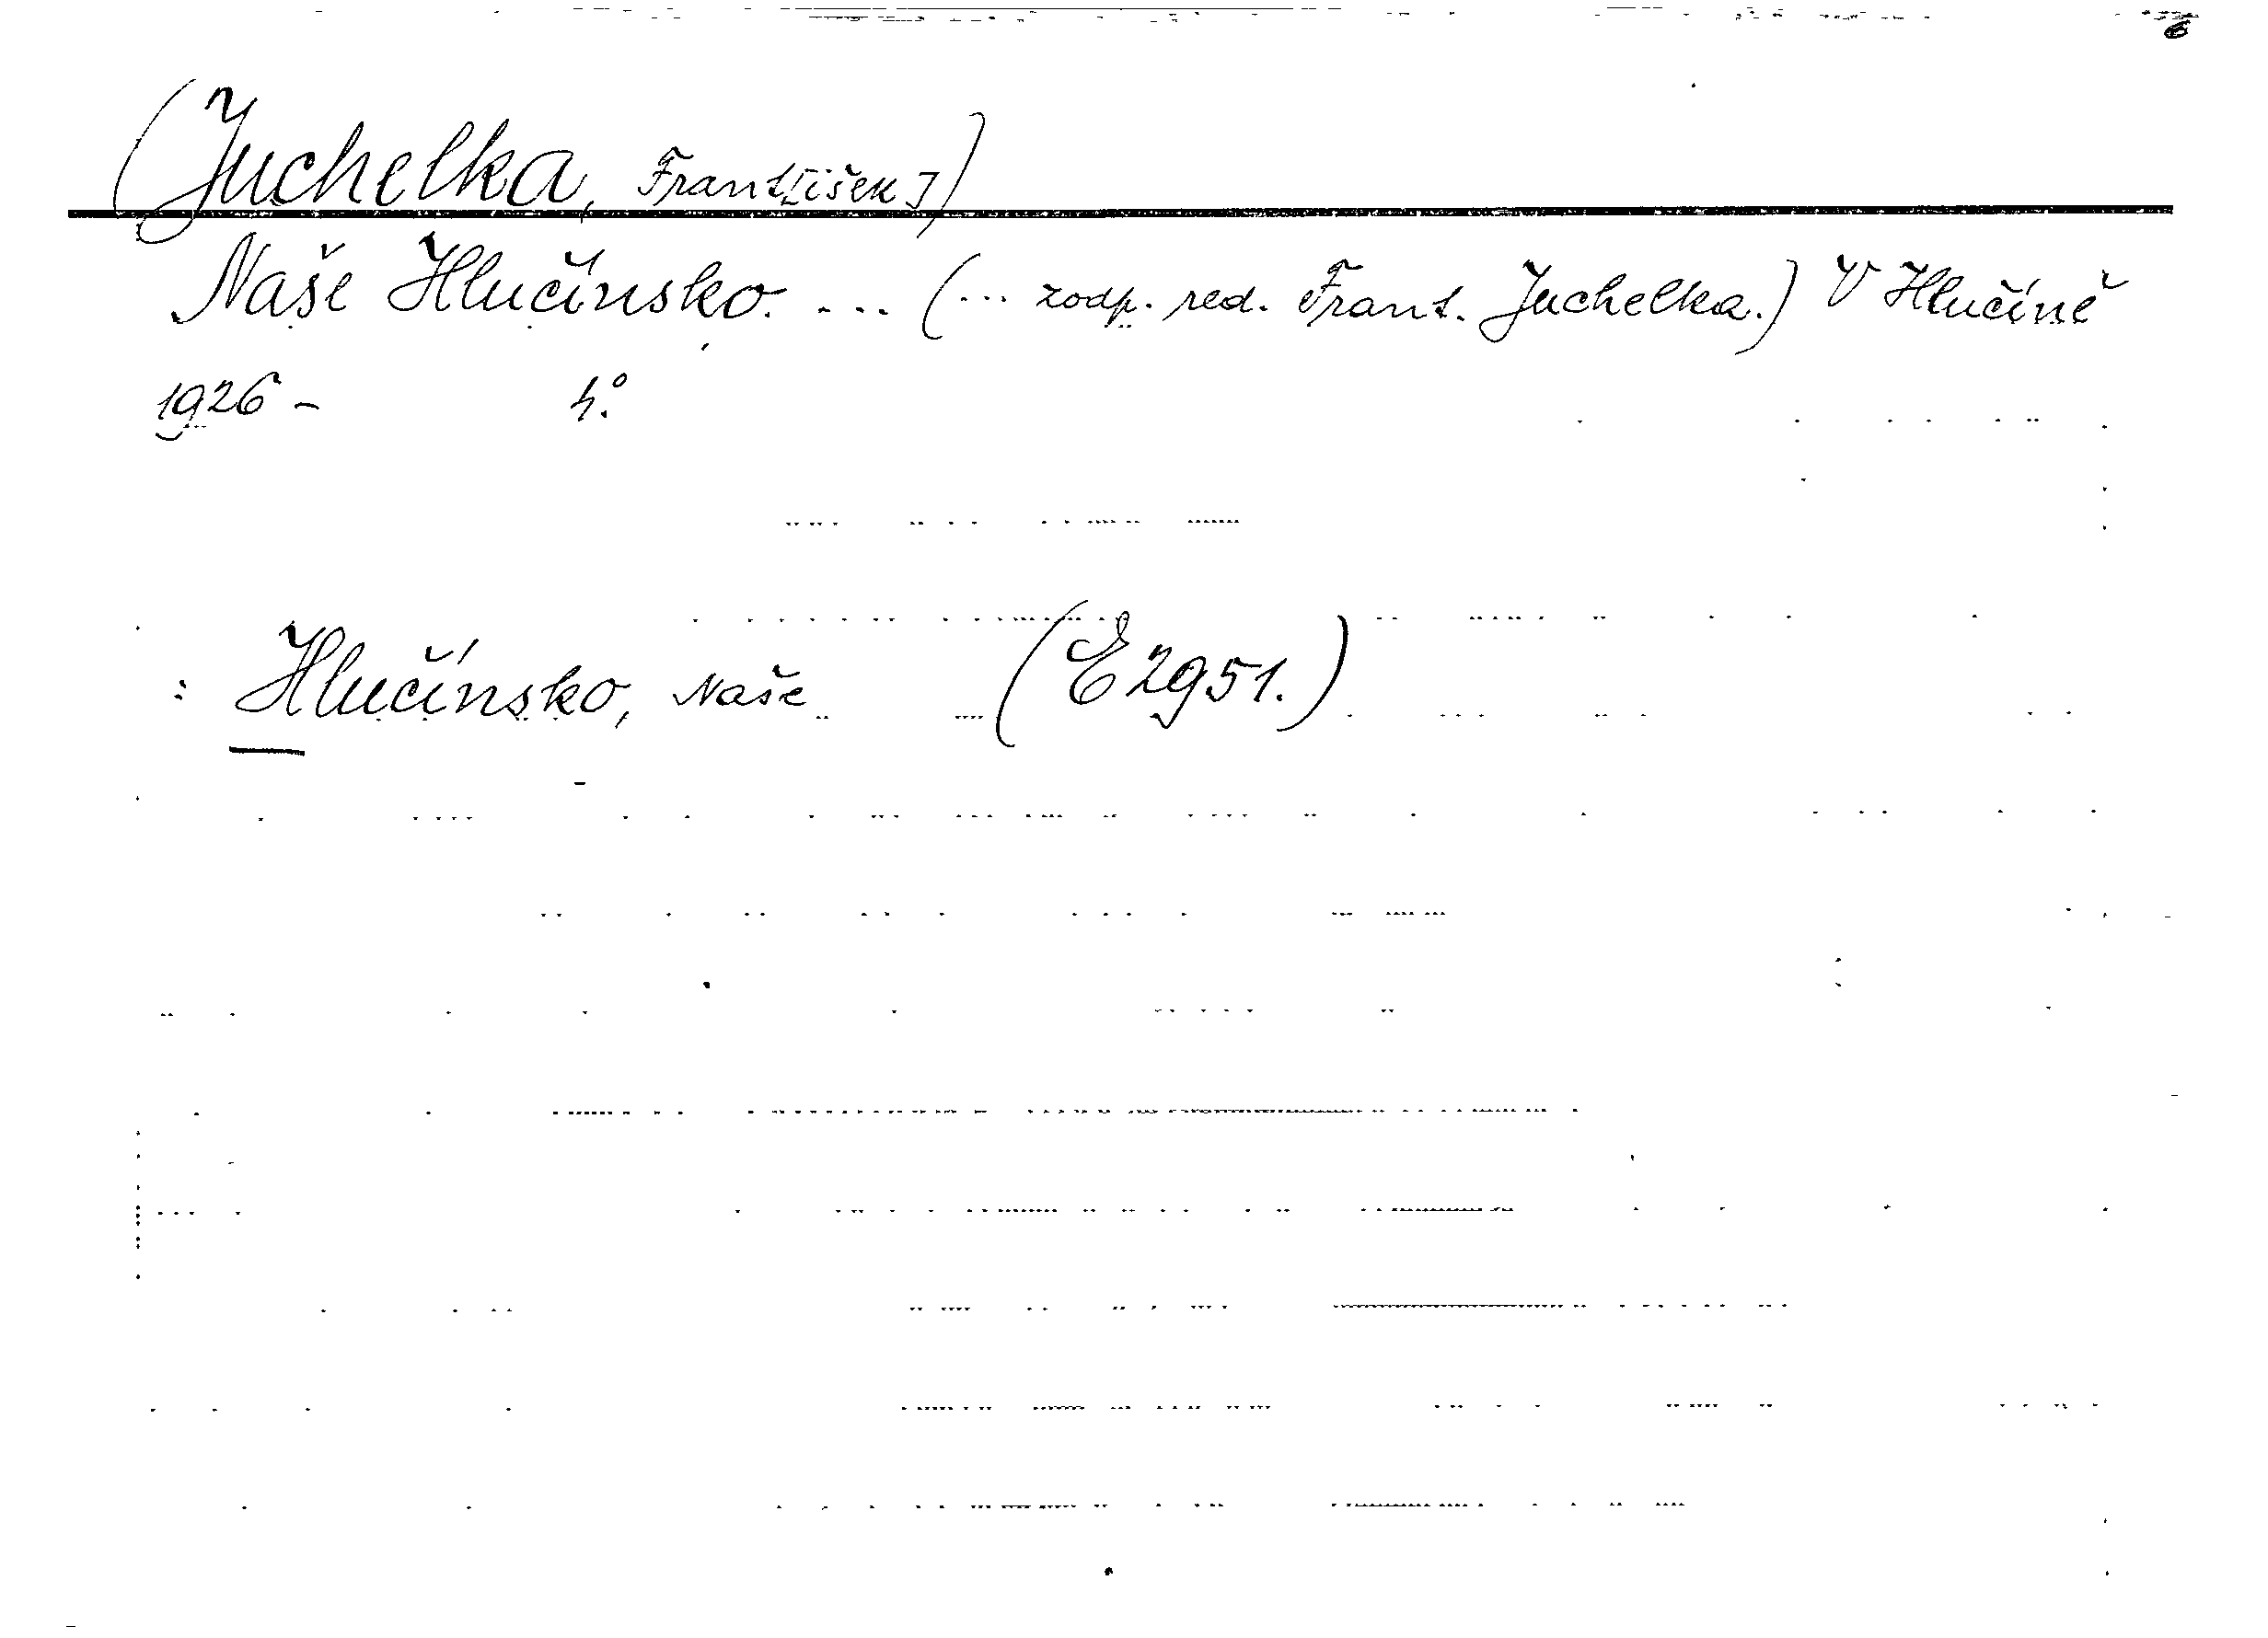 (Juchelka, Frant[išek])
Naše Hlučínsko. ... (... zodp. red. Frant. Juchelka.) V Hlučíně
1926 - 4°.
: Hlučínsko, Naše (E 2951.)